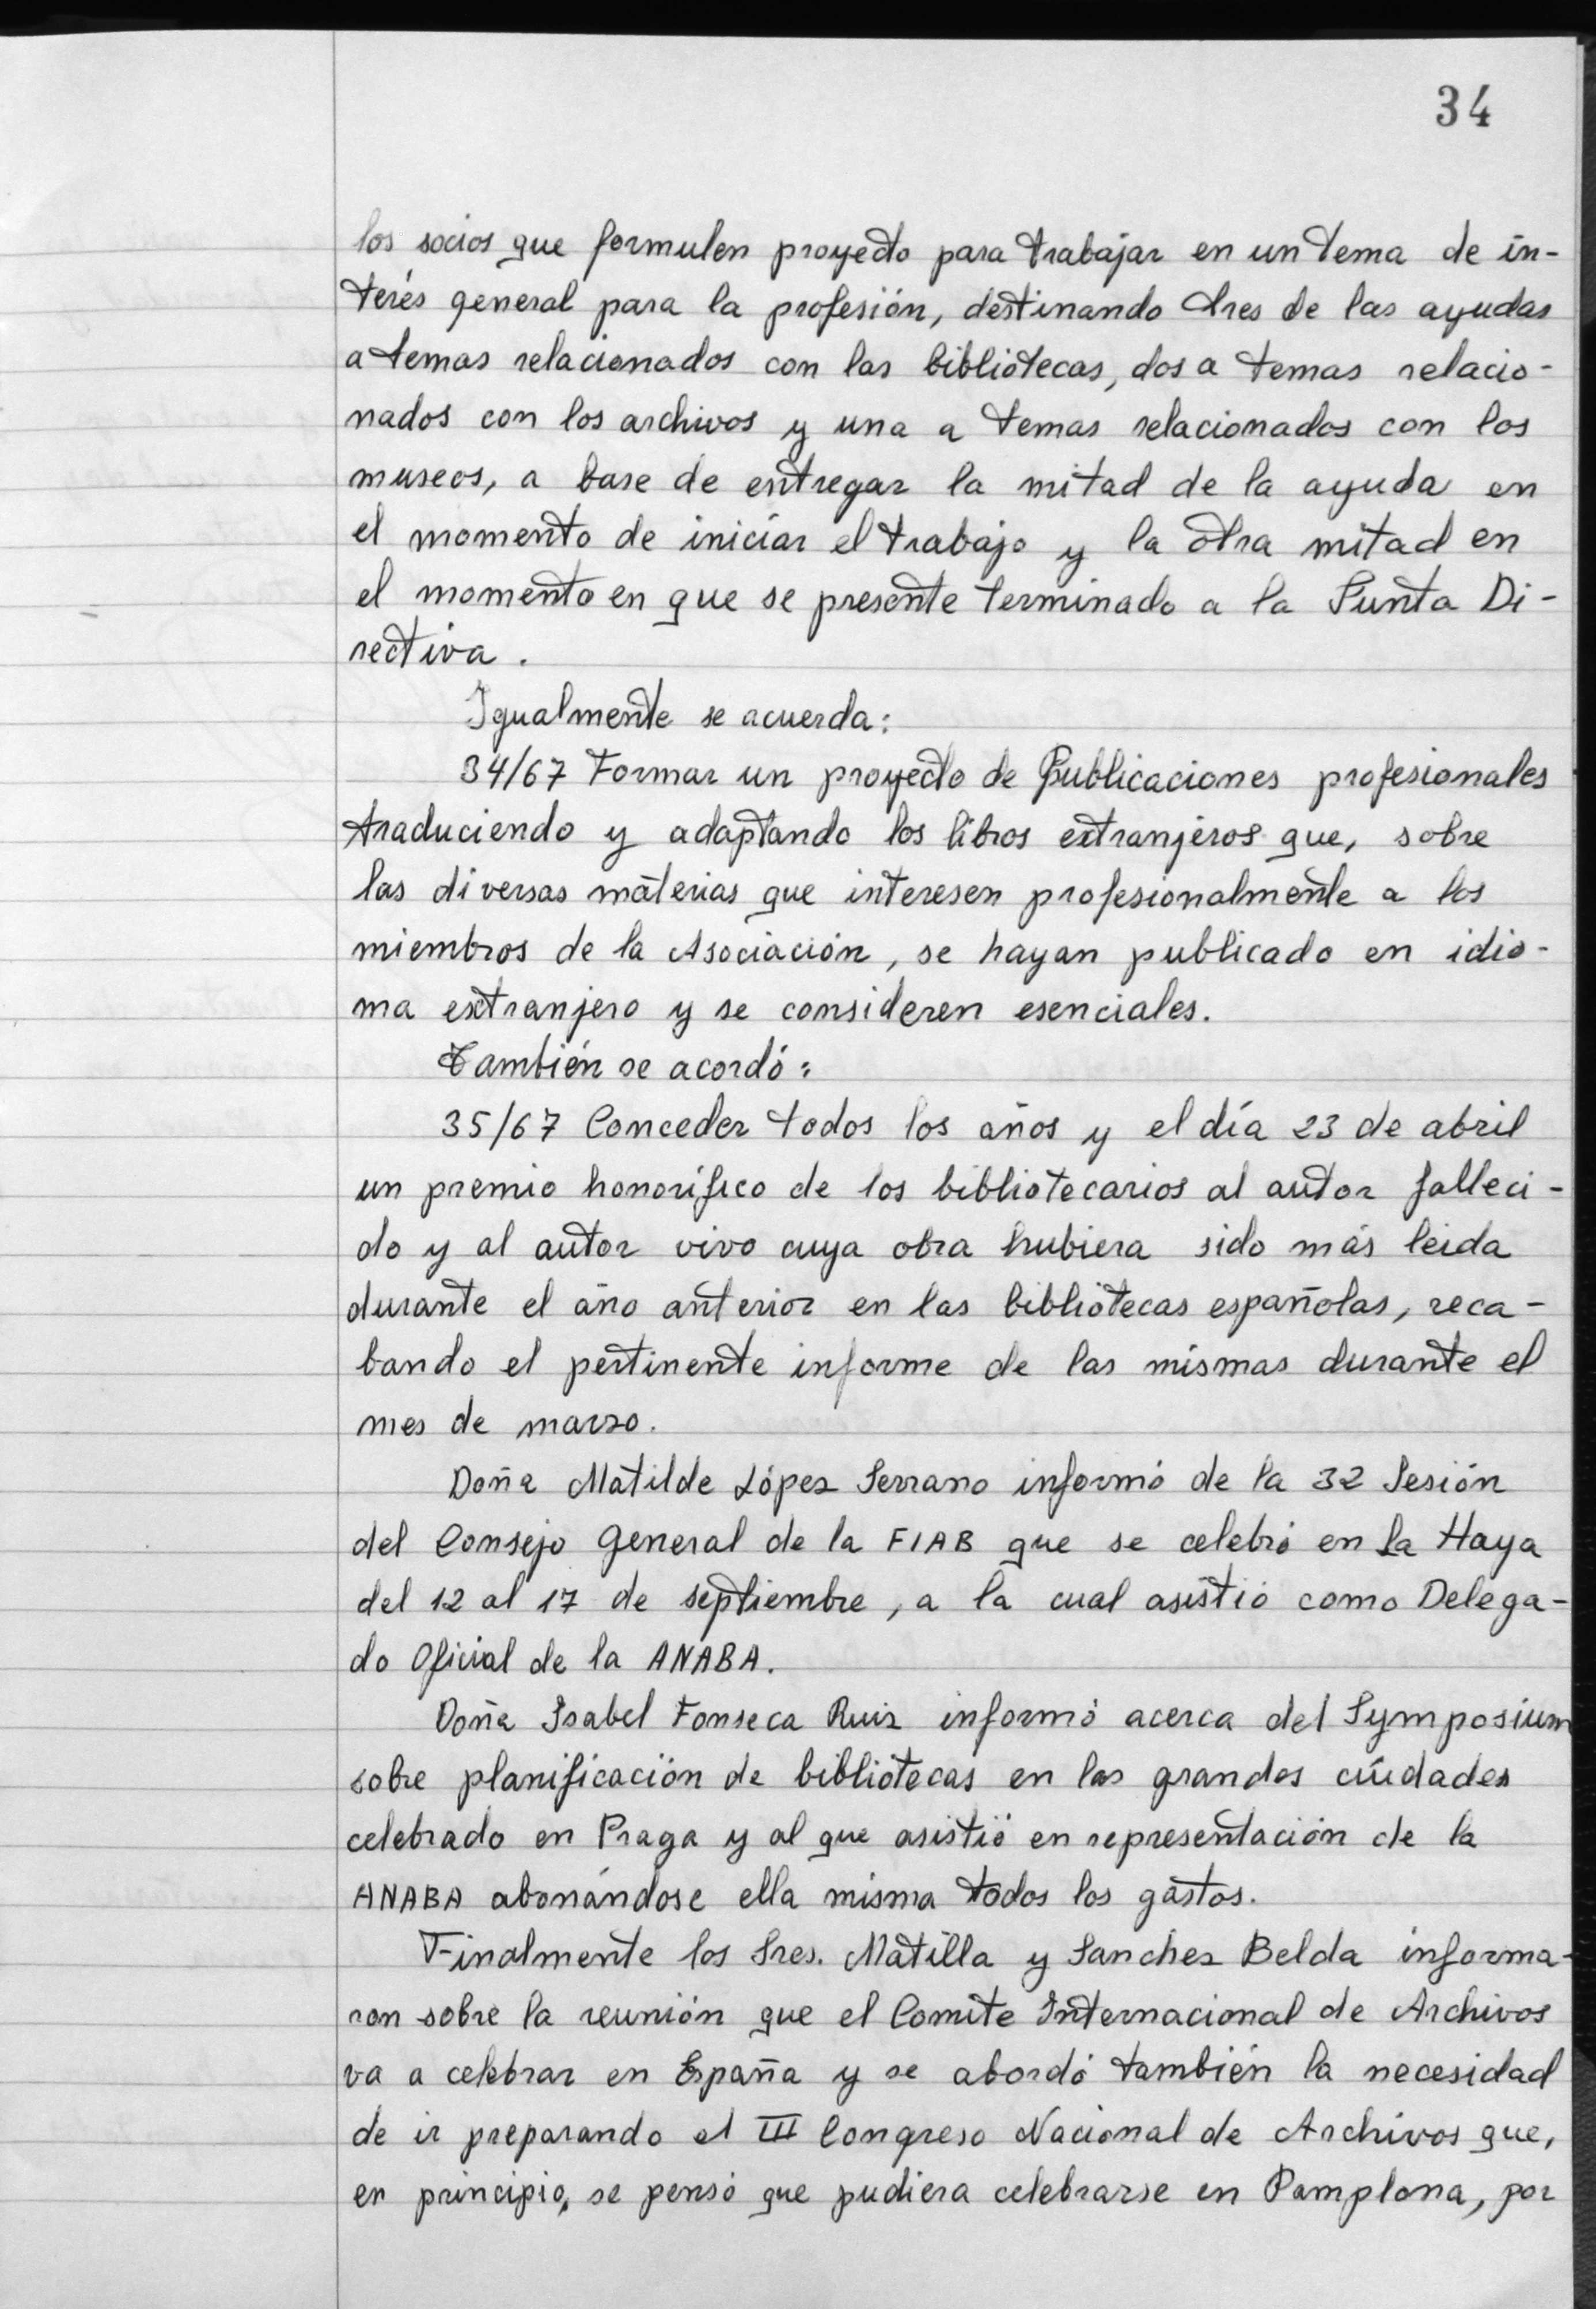 34
los socios que formulen proyecto para trabajar en un tema de in-
terés general para la profesión, destinando tres de las ayudas
a temas relacionados con las bibliotecas, dos a temas relacio-
nados con los archivos y una a temas relacionados con los
museos, a base de entregar la mitad de la ayuda en
el momento de iniciar el trabajo y la otra mitad en
el momento en que se presente terminado a la Junta Di-
rectiva.
Igualmente se acuerda:
34/67 Formar un proyecto de Publicaciones profesionales
traduciendo y adaptando los libros extranjeros que, sobre
las diversas materias que interesen profesionalmente a los
miembros de la Asociación, se hayan publicado en idio-
ma extranjero y se consideren esenciales.
También se acordó:
35/67 Conceder todos los años y el día 23 de abril
un premio honorífico de los bibliotecarios al autor falleci-
do y al autor vivo cuya obra hubiera sido más leida
durante el año anterior en las bibliotecas españolas, reca-
bando el pertinente informe de las mismas durante el
mes de marzo.
Doña Matilde López Serrano informó de la 32 Sesión
del Consejo General de la FIAB que se celebró en La Haya
del 12 al 17 de septiembre, a la cual asistió como Delega-
do Oficial de la ANABA.
Doña Isabel Fonseca Ruiz informó acerca del Symposium
sobre planificación de bibliotecas en las grandes ciudades
celebrado en Praga y al que asistió en representación de la
ANABA abonándose ella misma todos los gastos.
Finalmente los Sres. Matilla y Sanchez Belda informa-
ron sobre la reunión que el Comite Internacional de Archivos
va a celebrar en España y se abordó también la necesidad
de ir preparando el III Congreso Nacional de Archivos que,
en principio, se pensó que pudiera celebrarse en Pamplona, por